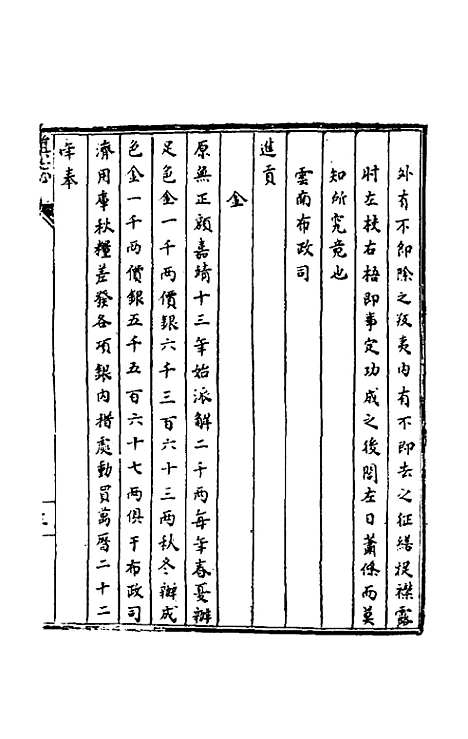 外有不即除之役夷內有不即去之征繕捉襟露
肘左枝右梧即事定功成之後閭左日蕭條而莫
知所究竟也
雲南布政司
進貢
金
原無正額嘉靖十三年始派解二千兩每年春夏辦
足色金一千兩價銀六千三百六十三兩秋冬辦成
色金一千兩價銀五千五百六十七兩俱于布政司
濟用庫秋糧差發各項銀內措處動買萬曆二十二
年奉
三